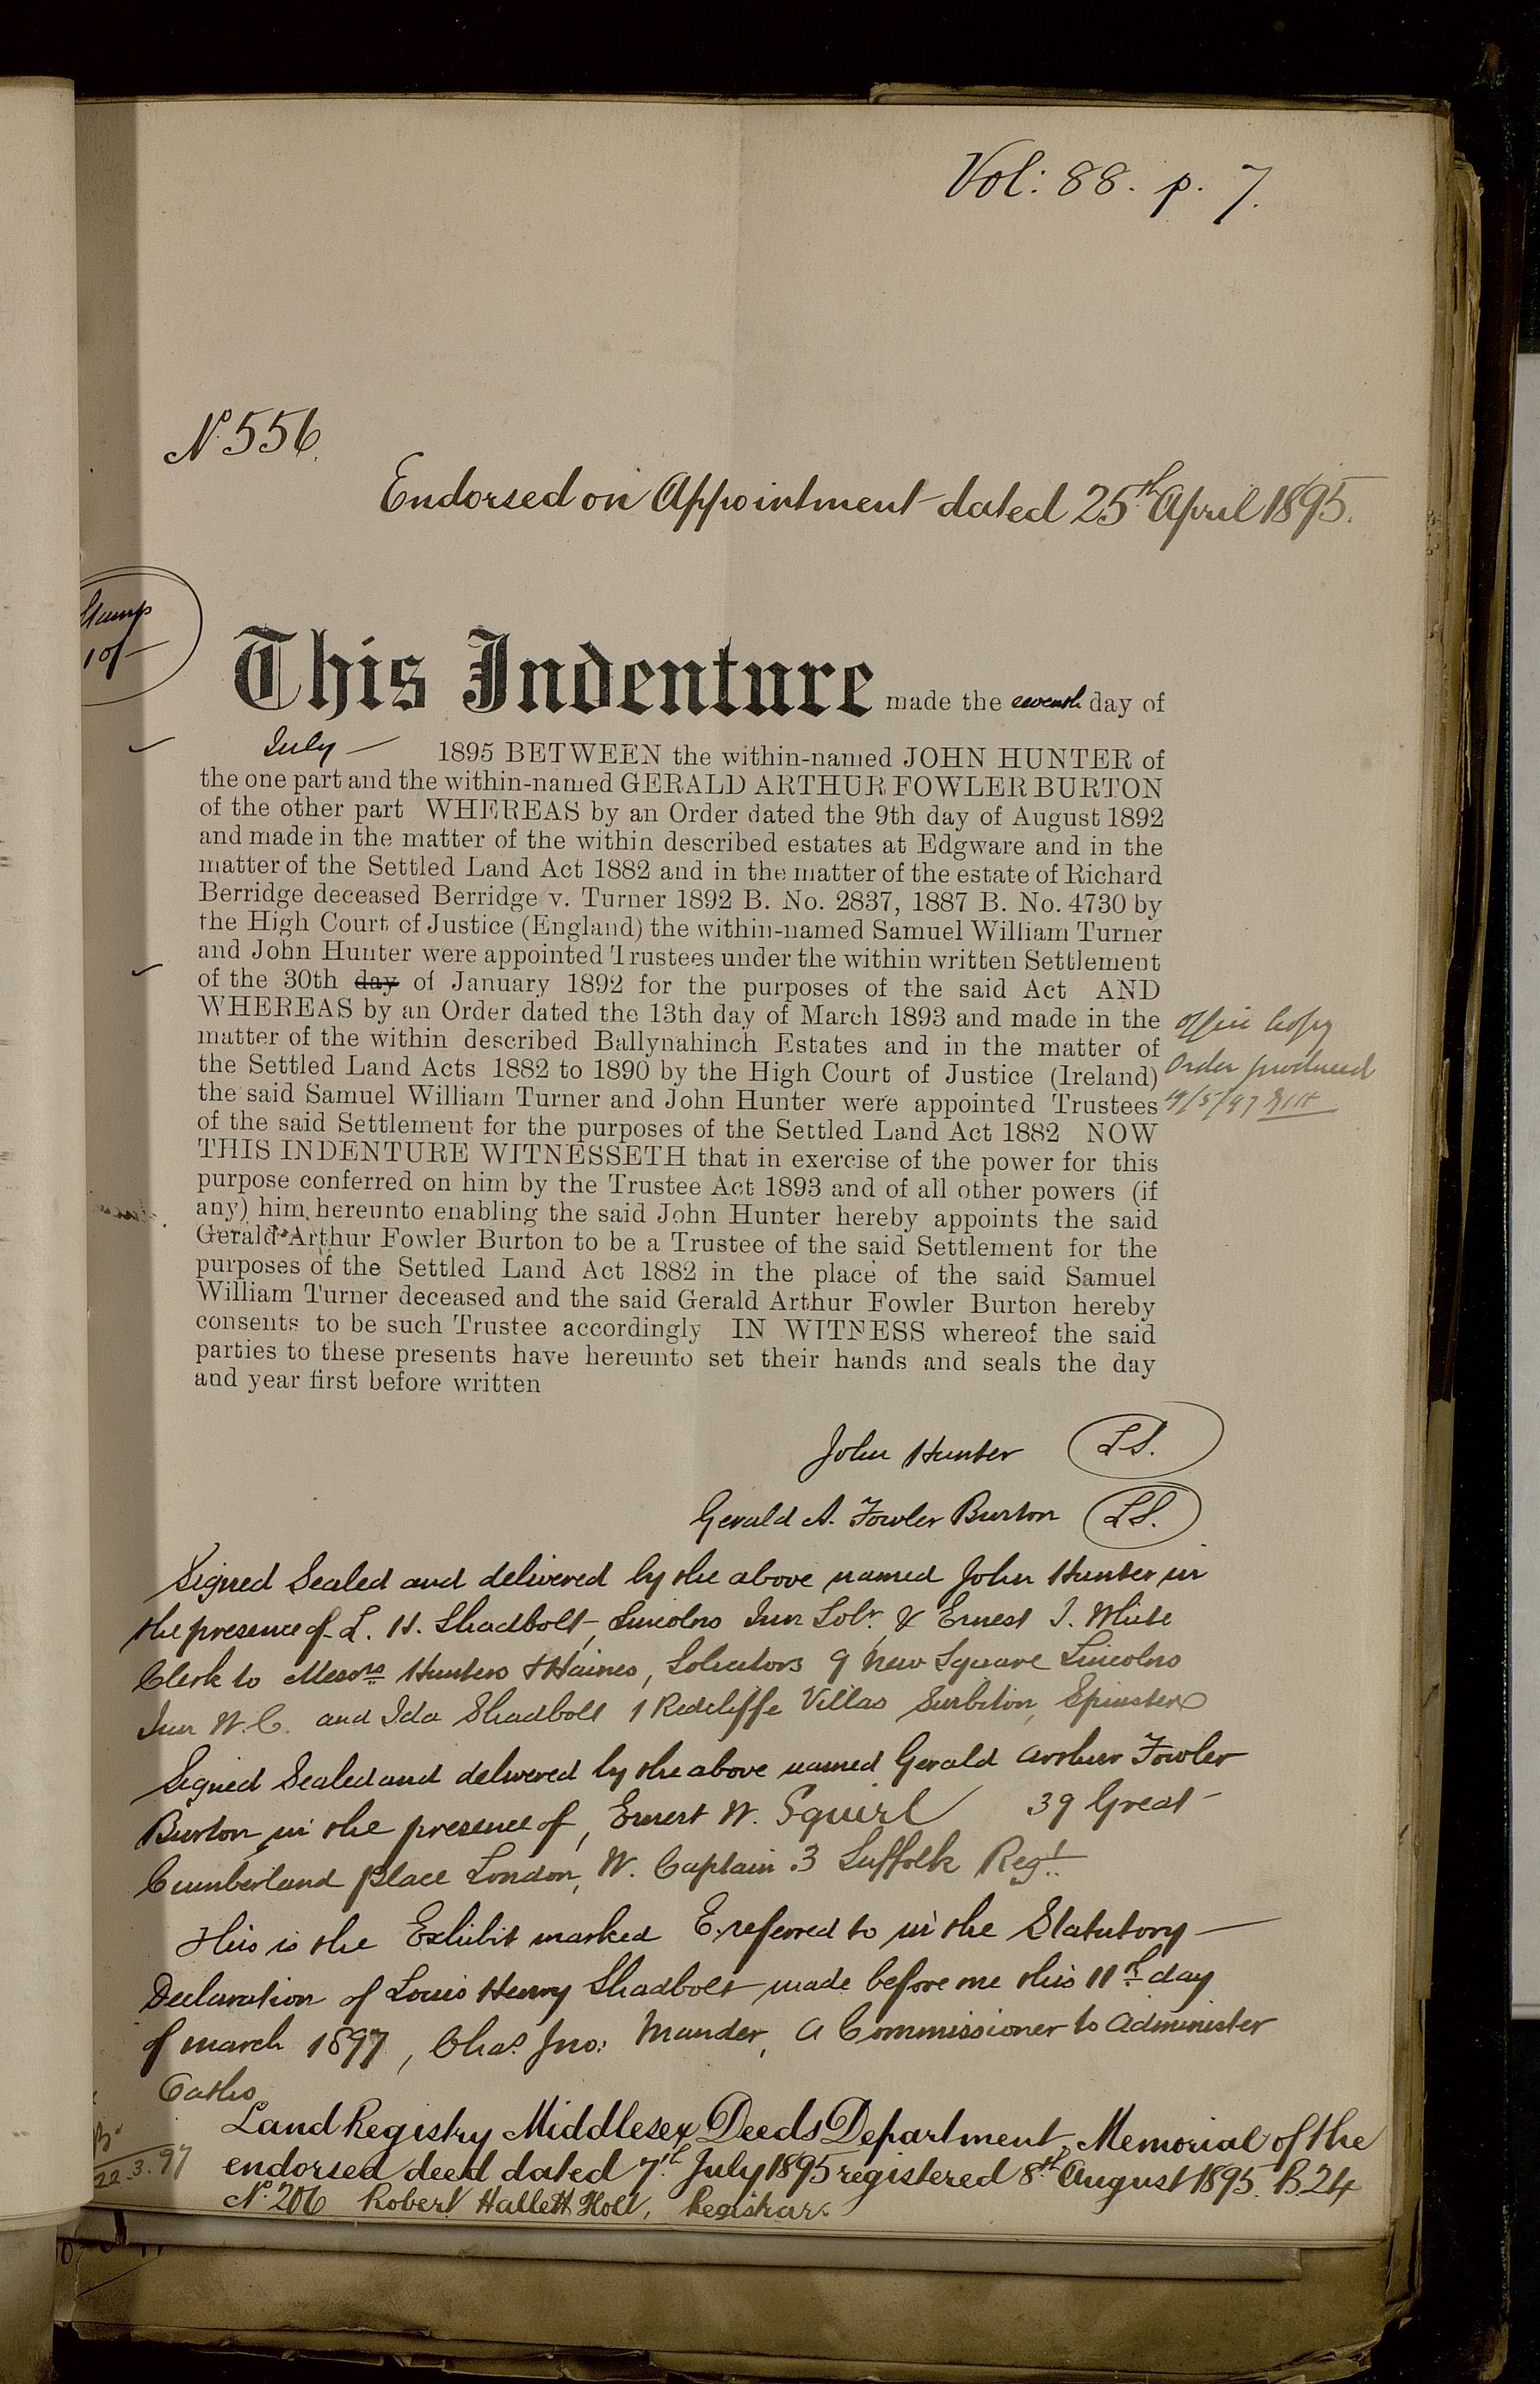 Vol: 88. p. 7.
No. 556.
Endorsed on Appointment dated 25th April 1895.
Stamp
10/-
This Indenture made the seventh day of
July — 1895 BETWEEN the within-named JOHN HUNTER of
the one part and the within-named GERALD ARTHUR FOWLER BURTON
of the other part WHEREAS by an Order dated the 9th day of August 1892
and made in the matter of the within described estates at Edgware and in the
matter of the Settled Land Act 1882 and in the matter of the estate of Richard
Berridge deceased Berridge v. Turner 1892 B. No. 2837, 1887 B. No. 4730 by
the High Court of Justice (England) the within-named Samuel William Turner
and John Hunter were appointed Trustees under the within written Settlement
of the 30th day of January 1892 for the purposes of the said Act AND
WHEREAS by an Order dated the 13th day of March 1893 and made in the
matter of the within described Ballynahinch Estates and in the matter of
the Settled Land Acts 1882 to 1890 by the High Court of Justice (Ireland)
the said Samuel William Turner and John Hunter were appointed Trustees
of the said Settlement for the purposes of the Settled Land Act 1882 NOW
THIS INDENTURE WITNESSETH that in exercise of the power for this
purpose conferred on him by the Trustee Act 1893 and of all other powers (if
any) him hereunto enabling the said John Hunter hereby appoints the said
Gerald Arthur Fowler Burton to be a Trustee of the said Settlement for the
purposes of the Settled Land Act 1882 in the place of the said Samuel
William Turner deceased and the said Gerald Arthur Fowler Burton hereby
consents to be such Trustee accordingly IN WITNESS whereof the said
parties to these presents have hereunto set their hands and seals the day
and year first before written
Office Copy
Order produced
John Hunter L.S.
Gerald A. Fowler Burton L.S.
Signed Sealed and delivered by the above named John Hunter in
the presence of L. H. Shadbolt, Lincolns Inn Solr. & Ernest J. White
Clerk to Messrs Hunters & Haines, Solicitors 9 New Square Lincolns
Inn W.C. and Ida Shadbolt 1 Redcliffe Villas Surbiton, Spinster
Signed Sealed and delivered by the above named Gerald Arthur Fowler
Burton in the presence of, Ernest W. Squirl 39 Great
Cumberland Place London, W. Captain 3 Suffolk Regt.
This is the Exhibit marked E. referred to in the Statutory —
Declaration of Louis Henry Shadbolt made before me this 11th day
of March 1897, Chas. Jno: Mander, A Commissioner to administer
Oaths
22.3.97
Land Registry Middlesex Deeds Department, Memorial of the
endorsed deed dated 7th July 1895 registered 8th August 1895. B.24
No. 206 Robert Hallett Holt, Registrar.